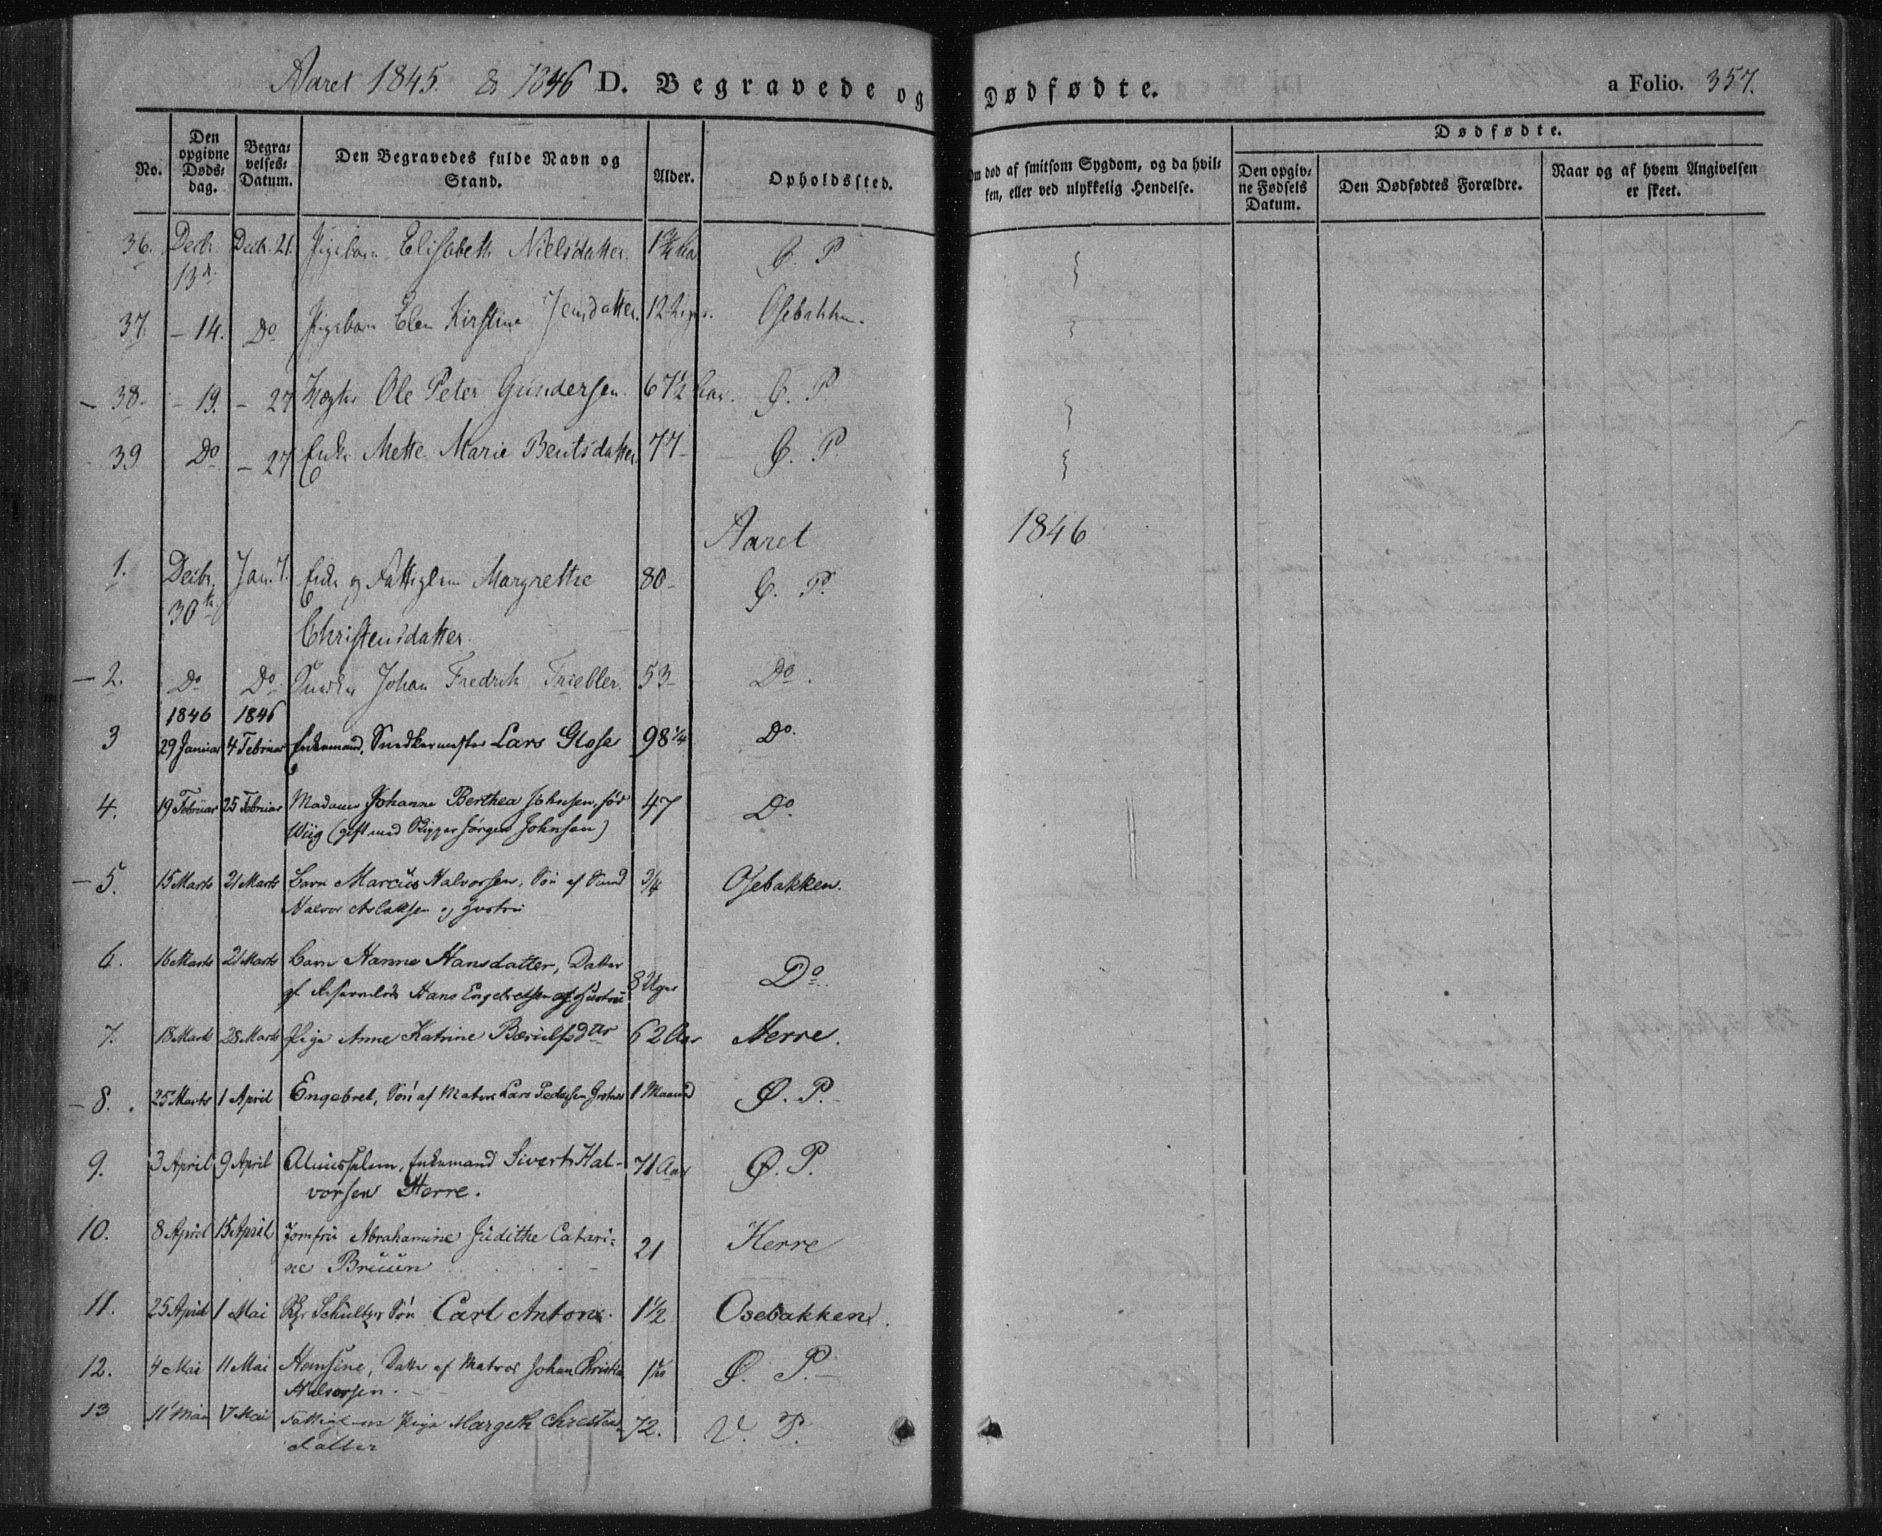 Aaret 1845. & 1846 D. Begravede og Dødfødte. a Folio. 357.
No.
Den opgivne Døds-dag.
Begra-velses-Datum.
Den Begravedes fulde Navn og Stand.
Alder.
Opholdssted.
Om død af smitsom Sygdom, og da hvil-ken, eller ved ulykkelig Hendelse.
Dødfødte.
Den opgiv-ne Fødsels Datum.
Den Dødfødtes Forældre.
Naar og af hvem Angivelsen er skeet.
36. Decbr. 13d. Decbr. 21. Pigebarn Elisabeth Nielsdatter. Ø. P.
37. - 14. Do Pigebarn Elen Kirstine Jensdatter. 12 Osebakken.
38. - 19. - 27 Ole Peter Gundersen. 67 1/2 Aar. Ø. P.
39 Do - 27 Enke Mette Marie Bentsdatter 77 - Ø. P.
Aaret 1846
1. Decbr. 30te Jan. 7. Enke og Fattiglem Margrethe 80 - Ø. P.
Christensdatter.
- 2. Do Do Johan Fredrik Triebler. 53 - Do.
1846 1846
3 29 Januar 4 Februar Enkemand, Snedkermester Lars Glose 98 1/4 Do.
4. 19 Februar 25 Februar Madame Johanne Berthea Johnsen, fød 47 Do.
Wiig (gift med Skipper Jørgen Johnsen)
- 5. 15 Marts 21 Marts Barn Marcus Halvorsen, Søn af 3/4 Osebakken.
Halvor Aslaksen og Hustru
6. 16 Marts 21 Marts Barn Hanne Hansdatter, Datter 8 Uger Do.
af Hans Engebretsen og Hustru
7. 18 Marts 28 Marts Pige Anne Katrine 62 Aar Herre.
- 8. 25 Marts 1 April Engebret, Søn af Matros Lars Pedersen 1 Maaned Ø. P. -
9. 3 April 9 April Almisselem, Enkemand Sivert Hal- 71 Aar Ø. P.
vorsen Herre.
10. 8 April 15 April Jomfru Abrahamine Judithe Catari- 21 Herre
ne Bruun
11. 25 April 1 Mai Schultzes Søn Carl Anton. 1 1/2 Osebakken.
12. 4 Mai 11 Mai Hansine, Datter af Matros Johan Christian Ø. P. -
Halvorsen. -
13 11 Mai 17 Mai Pige Margeth Christen- 72.
datter